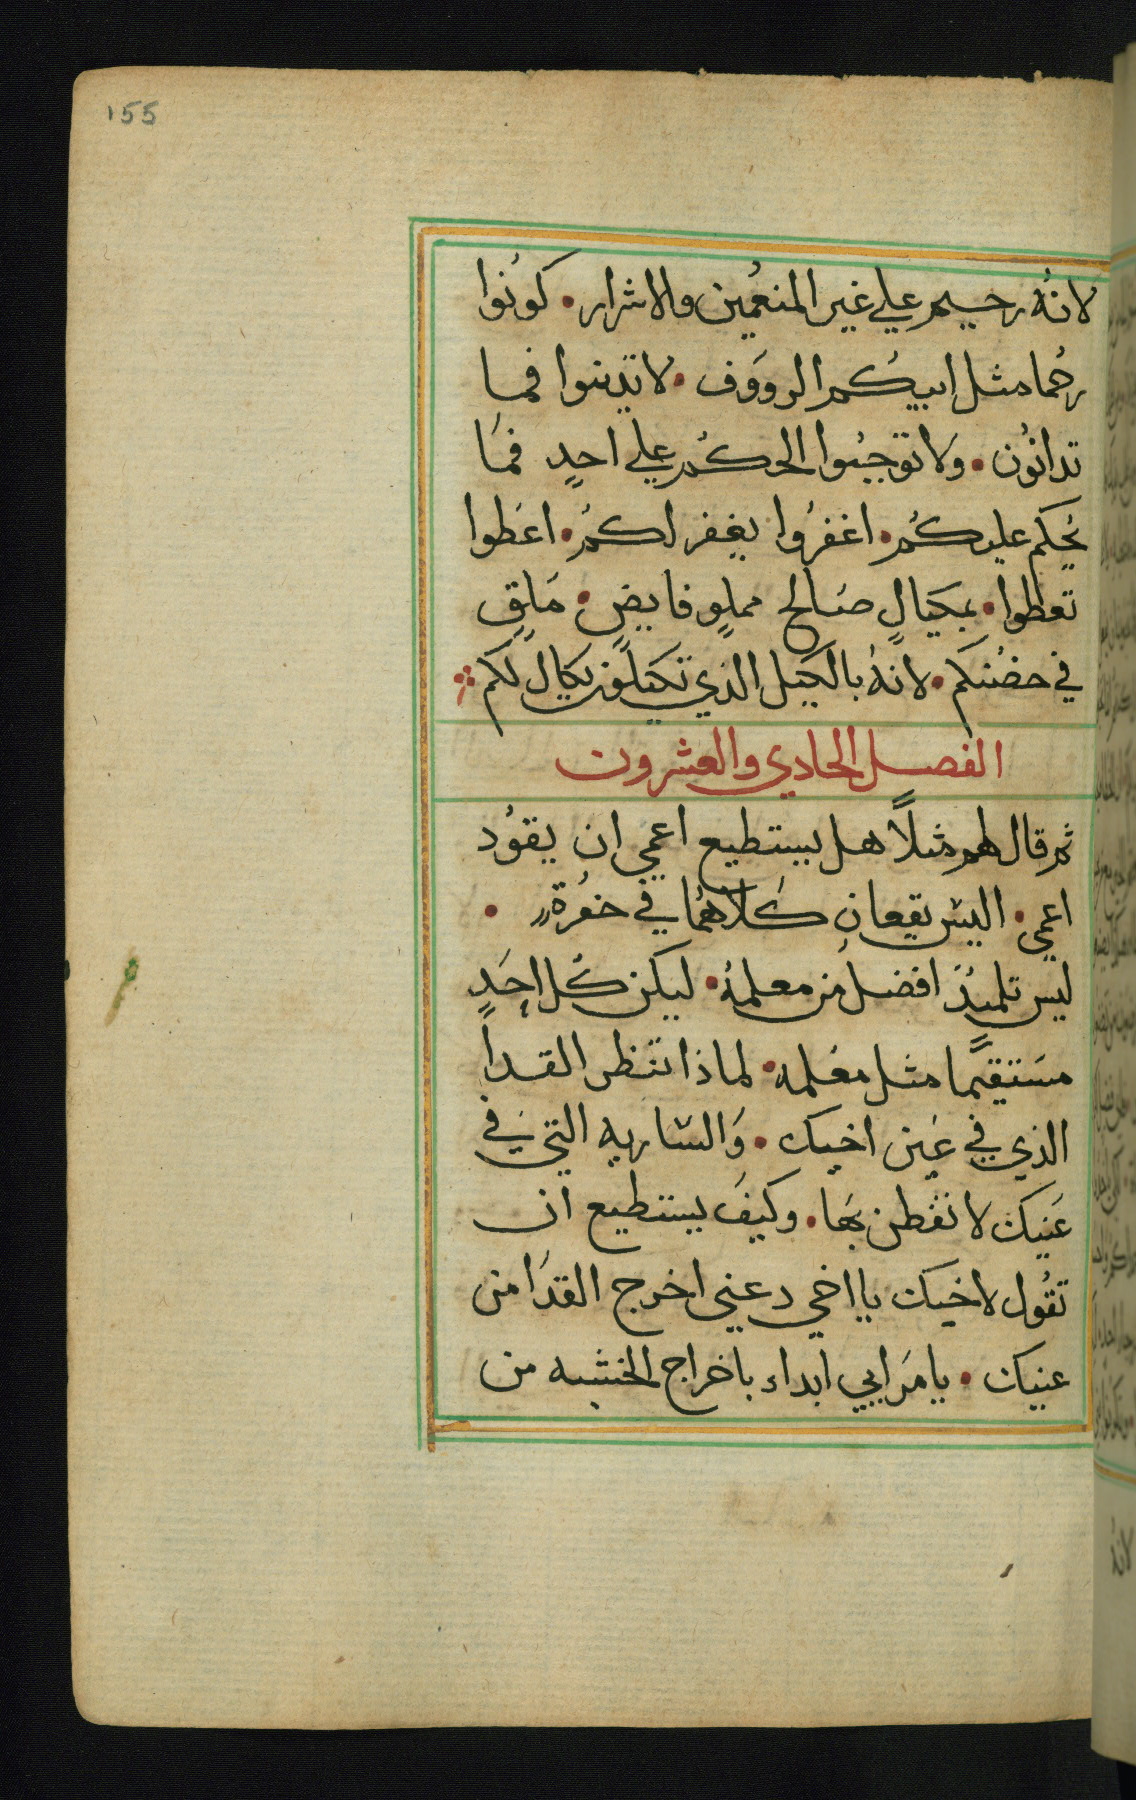 155
لانهُ رحيم علي غير المنعمين والاشرار • كونُوا
رحُما مثل ابيكُم الرووَف • لا تدينوا فما
تدانُون • وَلا توَجبُوا الحكُم علي احدٍ فمَا
يُحكم عليكُم • اغفرُوا يغفر لكُم • اعَطوا
تعطوا • بمكيالٍ صَالحٍ مملوٍ فايضٍ • مَلقٍ
في حضُنكم • لانهُ بالكيل الذي تكيلوُن يكال لكم
الفصل الحادي والعشرون
ثم قال لهم مثلاً هل يستطيع اعمي ان يقوُد
اعمي • اليس يقعانِ كلاهمُا في حفُرة •
ليس تلميذٌ افضل من معلمهُ • ليكن كُل احَدٍ
مسَتقيمًا مثل معَلمه • لماذا تنظر القدا
الذي في عَين اخيك • وَالساريه التيَ في
عَنيك لا تفطن بهَا • وكيفَ يستطيع ان
تقُول لاخيك يا اخي دعني اخرج القدَا من
عنيك • يا مَرايي ابداء باخراج الخشبه من